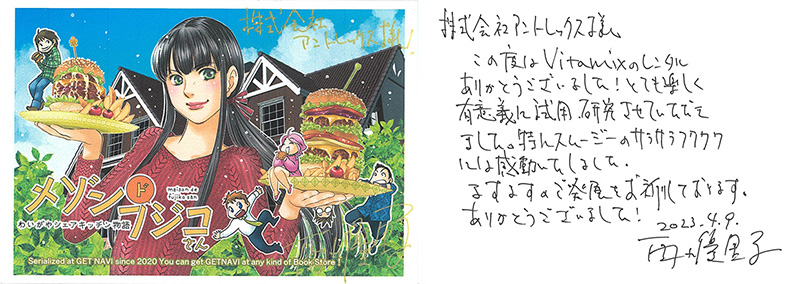 株式会社
アントレックス様!
メゾン
ド
maison de
fujiko san
フジコ
さん
めいがやシェアキッチン物語
Serialized at GET NAVI since 2020 You can get GETNAVI at any kind of Book Store !
株式会社アントレックス様
この度はVitamixのレンタル
ありがとうございました!とても楽しく
有意義に試用研究させていただき
ました。特にスムージーのサラサラフワフワ
には感動いたしました。
ますますのご発展をお祈りしております。
ありがとうございました!
2023.4.9.